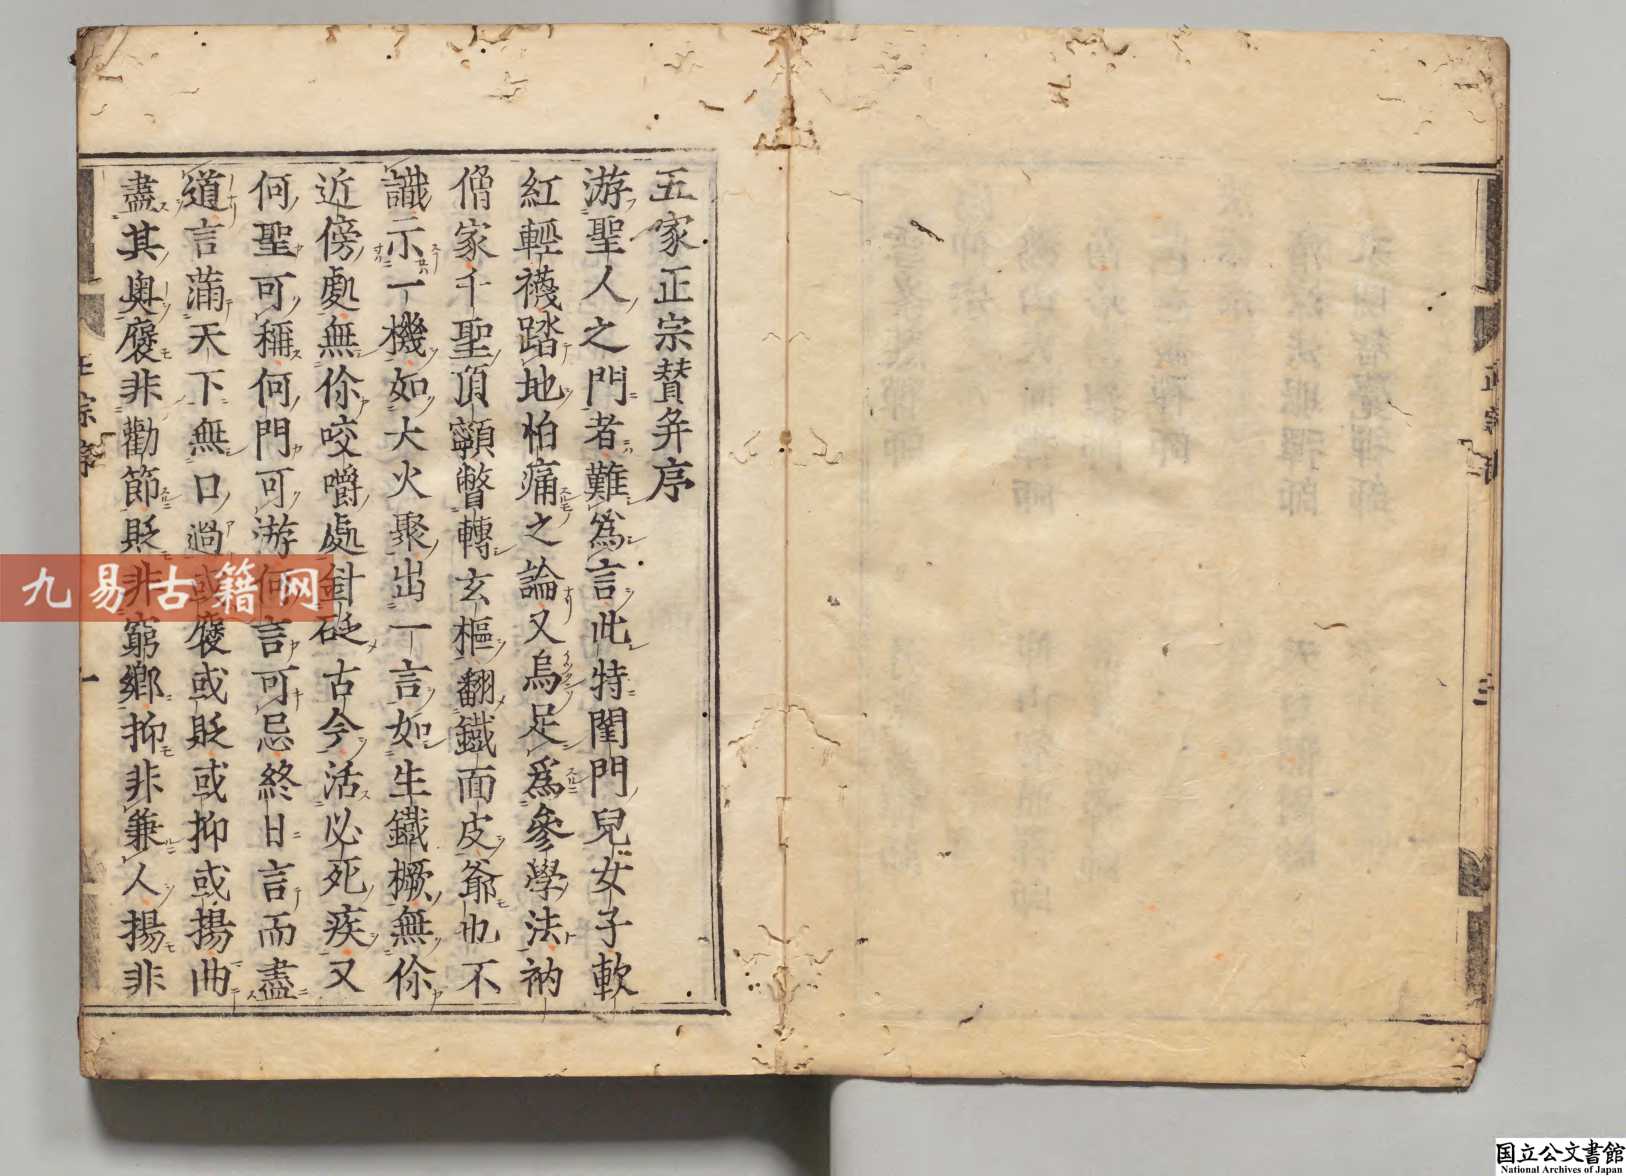 五家正宗賛并序
游聖人之門者難為言此特閨門兒女子軟
紅輕襪踏地怕痛之論又烏足爲參學法衲
僧家千聖頂𩕳瞥轉玄樞翻鐵面皮爺也不
識示一機如大火聚出一言如生鐵橛無你
近傍處無你咬嚼處針砭古今活必死疾又
何聖可稱何門可游何言可忌終日言而盡
道言滿天下無口過或褒或貶或抑或揚曲
盡其奧褒非勸節貶非窮鄉抑非兼人揚非
正宗序
一
三
九易古籍网
国立公文書館
National Archives of Japan